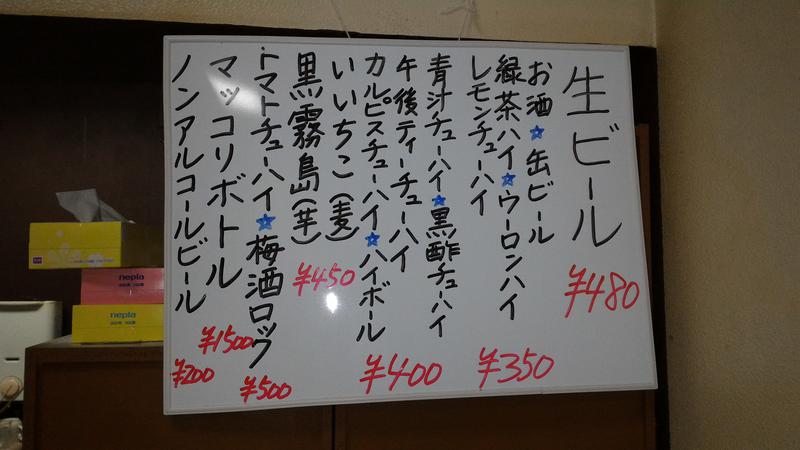 生ビール
¥480
お酒☆缶ビール
緑茶ハイ☆ウーロンハイ
レモンチューハイ
¥350
青汁チューハイ☆黒酢チューハイ
午後ティーチューハイ
カルピスチューハイ☆ハイボール
¥400
いいちこ(麦)
黒霧島(芋)
¥450
トマトチューハイ☆梅酒ロック
¥500
マッコリボトル
¥1500
ノンアルコールビール
¥200
nepia
nepia